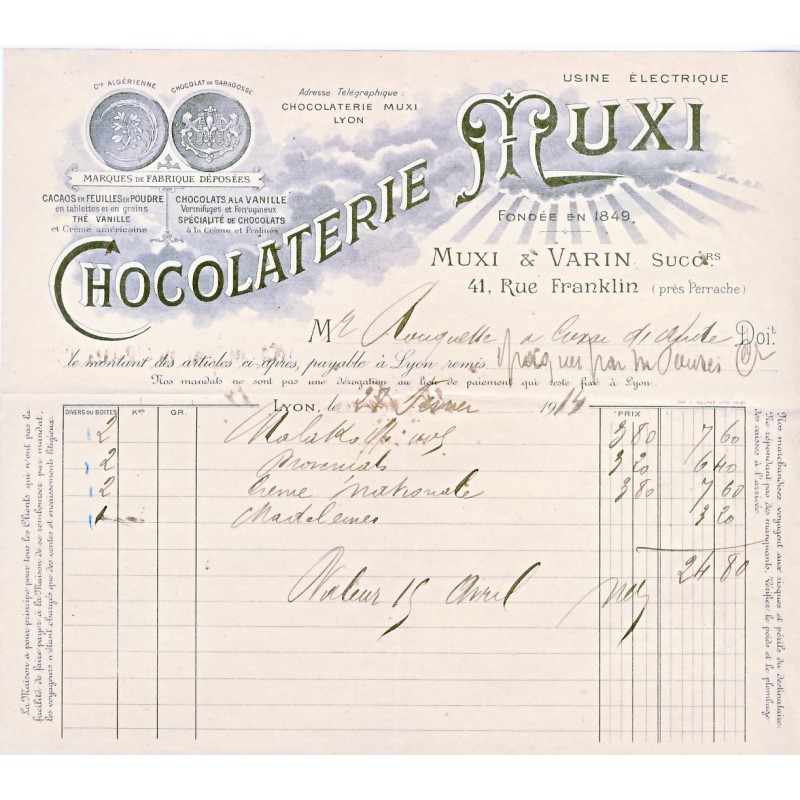 USINE ÉLECTRIQUE
Cie ALGÉRIENNE
CHOCOLAT DE SARAGOSSE
Adresse Télégraphique:
CHOCOLATERIE MUXI
LYON
MARQUES DE FABRIQUE DÉPOSÉES
CACAOS EN FEUILLES EN POUDRE
en tablettes et en grains
THÉ VANILLE
et Crème américaine
CHOCOLATS A LA VANILLE
Vermifuges et Ferrugineux
SPÉCIALITÉ DE CHOCOLATS
à la Crème et Pralinés
CHOCOLATERIE MUXI
FONDÉE EN 1849.
MUXI & VARIN SUCCRS
41, RUE FRANKLIN (près Perrache)
Mr Rouquette à Doit
le montant des articles ci après, payable à Lyon remis
Nos mandats ne sont pas une dérogation au lieu de paiement qui reste fixé à Lyon.
LYON, le 28 Février 1914
DIVERS OU BOITES KOS GR. PRIX
2 Malakoff 3 80 7 60
2 3 20 6 40
2 Crème Nationale 3 80 7 60
1 Madeleines 3 20
24 80
Valeur 15 Avril
La Maison a pour principe pour tous les Clients qui n'ont pas la
facilité de faire payer à la Maison de se rembourser par mandat,
les voyageurs n'étant chargés que des ventes et encaissements litigieux.
Nos marchandises voyagent aux risques et périls du destinataire.
Ne répondant pas des manquants, Vérifier le poids et le plombage
des caisses à l'arrivée.